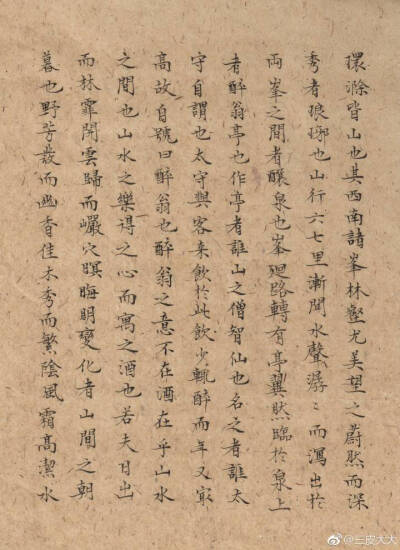 環滁皆山也其西南諸峯林壑尤美望之蔚然而深
秀者琅琊也山行六七里漸聞水聲潺〻而瀉出於
兩峯之間者釀泉也峯迴路轉有亭翼然臨於泉上
者醉翁亭也作亭者誰山之僧智仙也名之者誰太
守自謂也太守與客来飲於此飲少輒醉而年又冣
高故自號曰醉翁也醉翁之意不在酒在乎山水
之間也山水之樂得之心而寓之酒也若夫日出
而林霏開雲歸而巖穴暝晦明變化者山間之朝
暮也野芳發而幽香佳木秀而繁陰風霜高潔水
@三皮大大